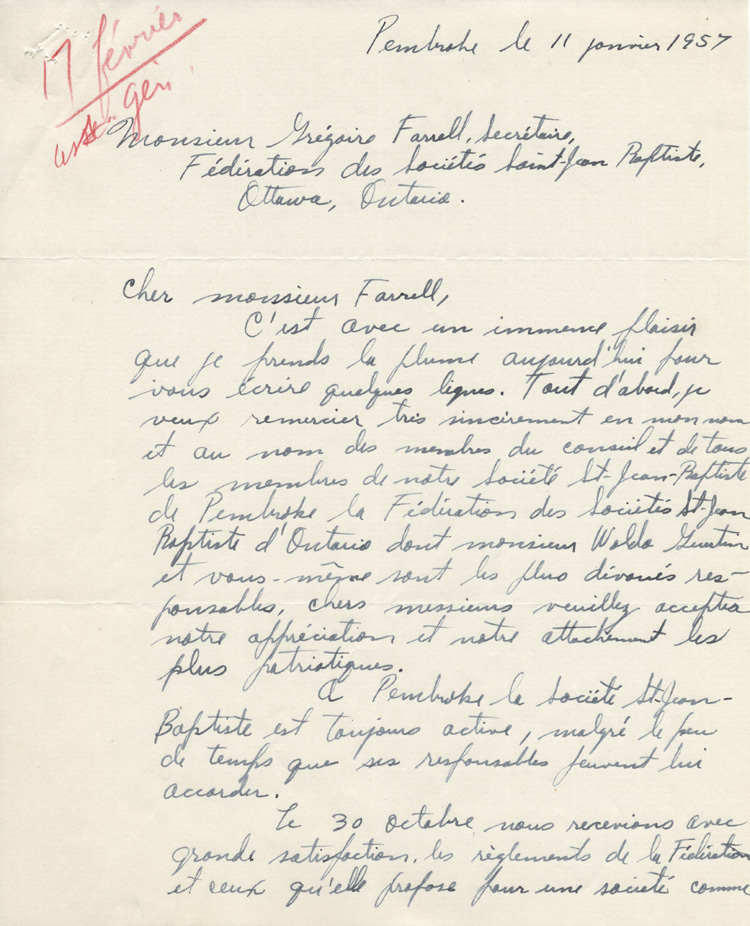 17 février
ass. gén.
Pembroke le 11 janvier 1957
Monsieur Grégoire Farrell, Secrétaire,
Fédération des Sociétés Saint-Jean Baptiste,
Ottawa, Ontario.
Cher monsieur Farrell,
C'est avec un immense plaisir
que je prends la plume aujourd'hui pour
vous écrire quelques lignes. Tout d'abord, je
veux remercier très sincèrement en mon nom
et au nom des membres du conseil et de tous
les membres de notre Société St-Jean-Baptiste
de Pembroke la Fédération des Sociétés St-Jean
Baptiste d'Ontario dont monsieur Waldo Guertin
et vous-même sont les plus dévoués res-
ponsables, chers messieurs veuillez accepter
notre appréciation et notre attachement les
plus patriotiques.
A Pembroke la Société St-Jean-
Baptiste est toujours active, malgré le peu
de temps que ses responsables peuvent lui
accorder.
Le 30 octobre nous recevions avec
grande satisfaction, les règlements de la Fédération
et ceux qu'elle propose pour une société comme